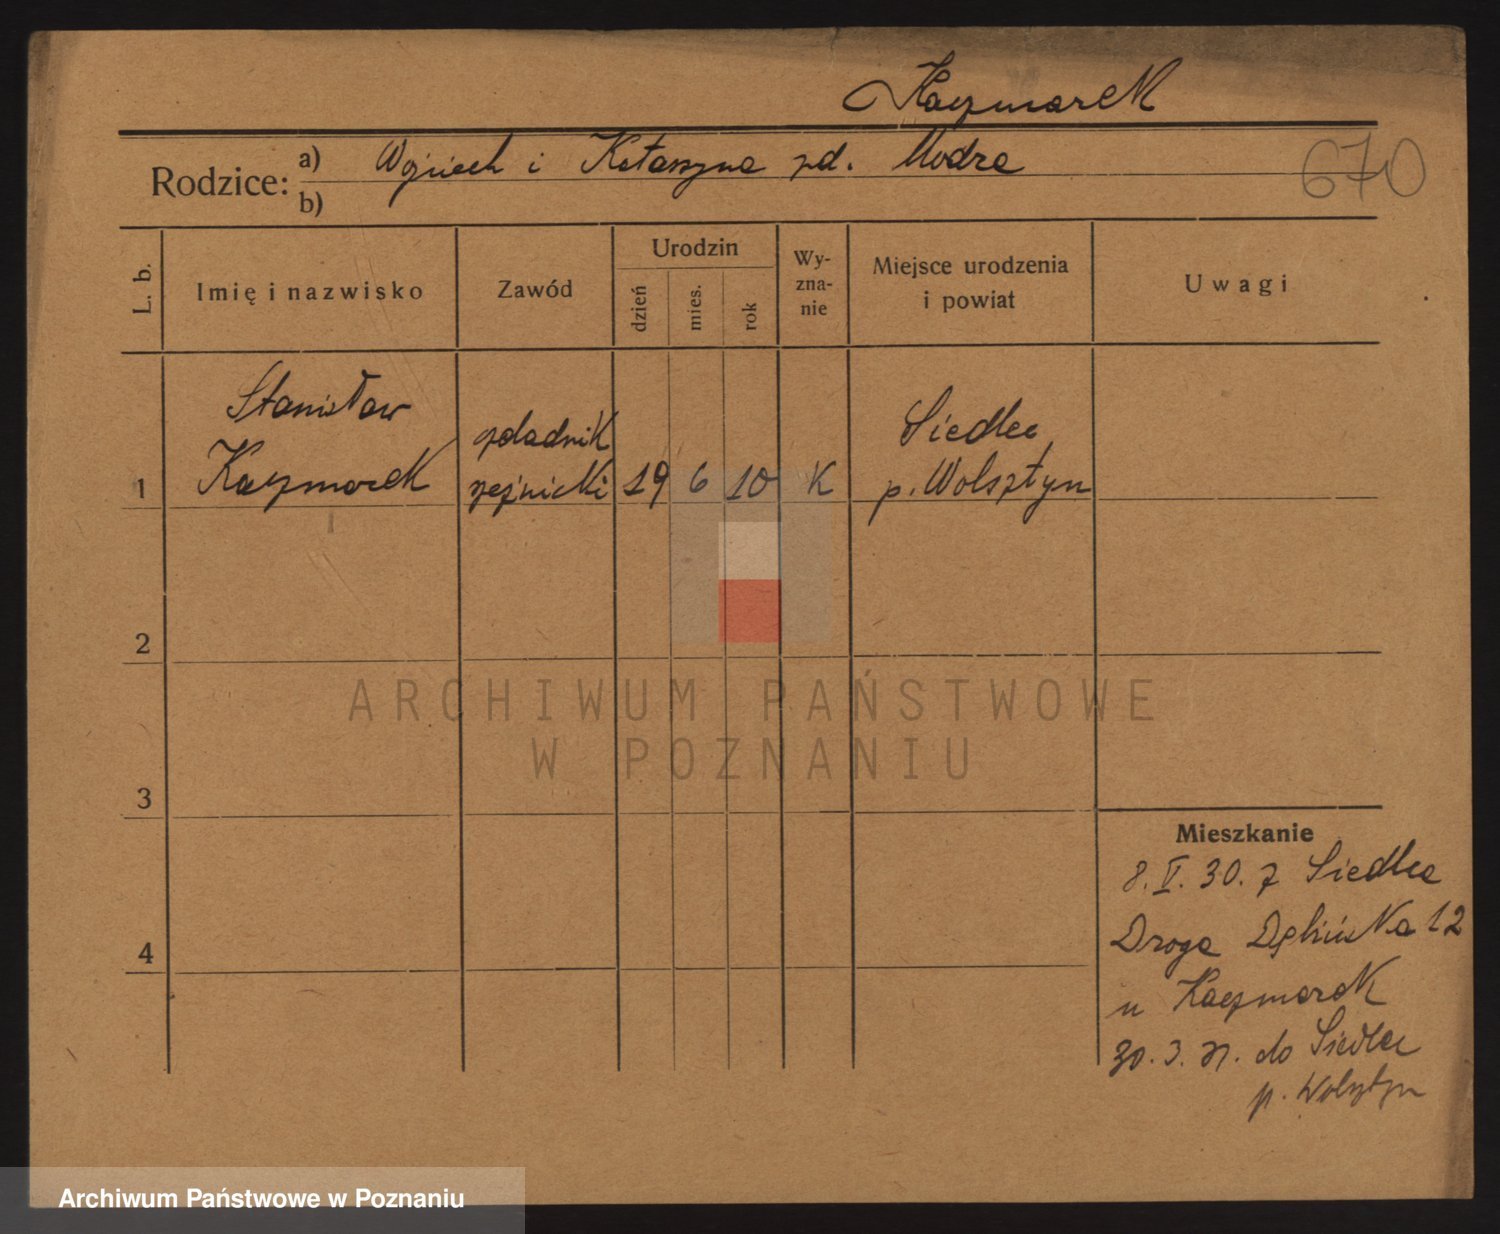 Kaczmarek
Rodzice: a) Wojciech i Katarzyna zd. Modra
b)
670
L. b.
Imię i nazwisko
Zawód
Urodzin
dzień
mies.
rok
Wy-
zna-
nie
Miejsce urodzenia
i powiat
Uwagi
1
Stanisław
Kaczmarek
czeladnik
rzeźnicki
19 6 10 K
Siedlec
p. Wolsztyn
2
3
4
ARCHIWUM PAŃSTWOWE
W POZNANIU
Mieszkanie
8. V. 30. z Siedlec
Droga Dębińska 12
u Kaczmarek
30. 3. 31. do Siedlec
p. Wolsztyn
Archiwum Państwowe w Poznaniu